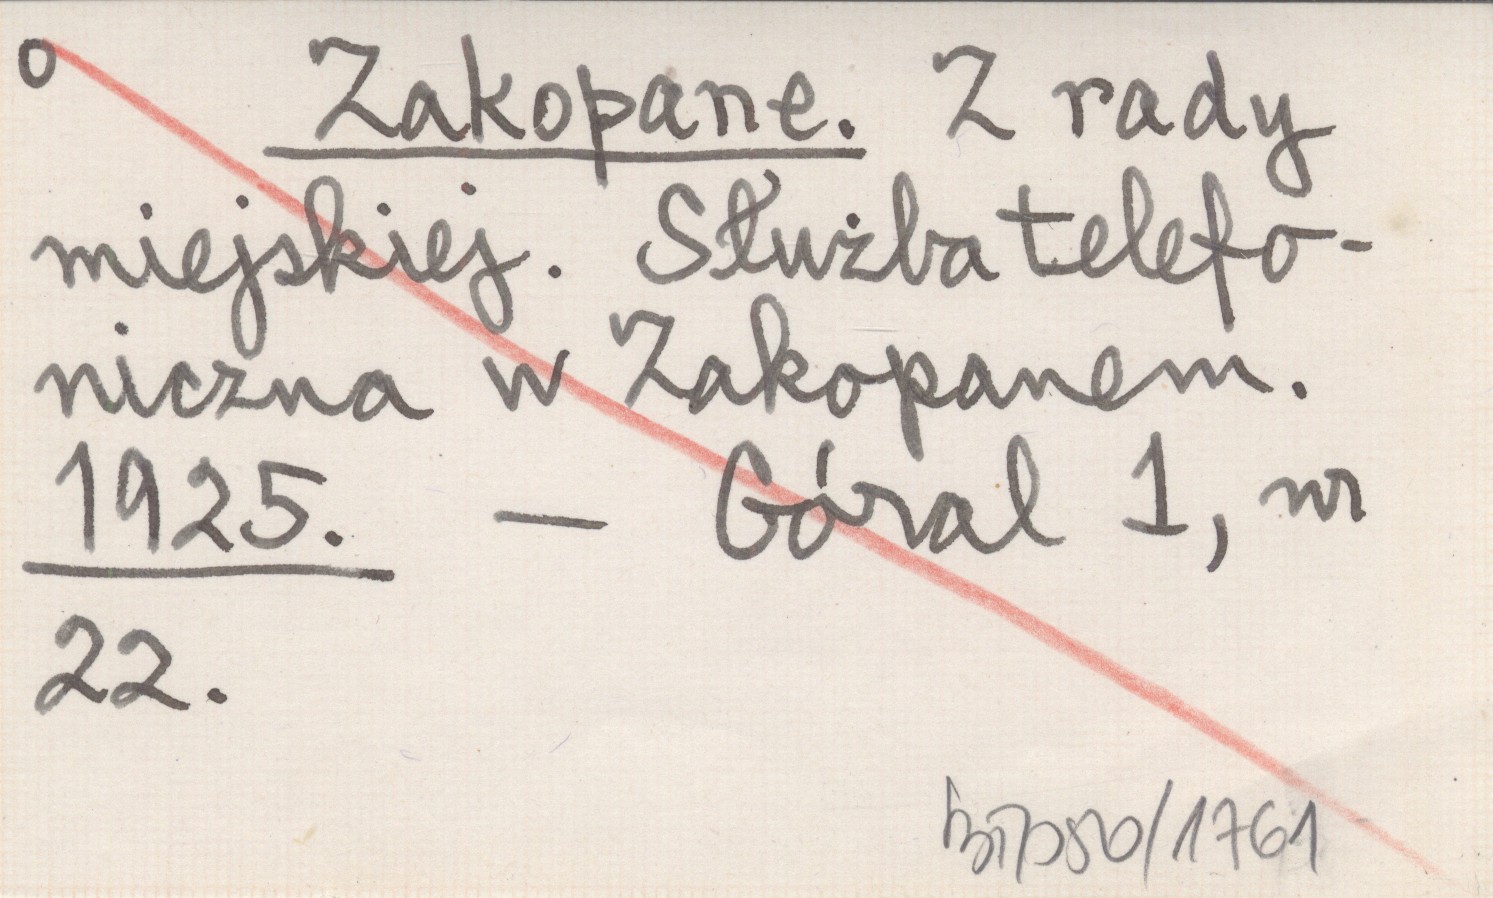 o Zakopane. Z rady
miejskiej. Służba telefo-
niczna w Zakopanem.
1925. — Góral 1, nr
22.
/1761